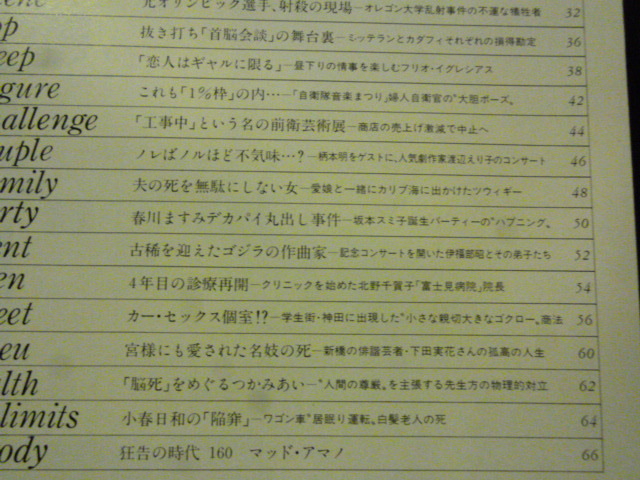 元オリンピック選手、射殺の現場―オレゴン大学乱射事件の不運な犠牲者 32
op 抜き打ち「首脳会談」の舞台裏―ミッテランとカダフィそれぞれの損得勘定 36
eep 「恋人はギャルに限る」―昼下りの情事を楽しむフリオ・イグレシアス 38
gure これも「1%枠」の内…―「自衛隊音楽まつり」婦人自衛官の"大胆ポーズ" 42
allenge 「工事中」という名の前衛芸術展―商店の売上げ激減で中止へ 44
uple ノレばノルほど不気味…?―柄本明をゲストに、人気劇作家渡辺えり子のコンサート 46
mily 夫の死を無駄にしない女―愛娘と一緒にカリブ海に出かけたツウィギー 48
rty 春川ますみデカパイ丸出し事件―坂本スミ子誕生パーティーの"ハプニング" 50
ent 古稀を迎えたゴジラの作曲家―記念コンサートを開いた伊福部昭とその弟子たち 52
en 4年目の診療再開―クリニックを始めた北野千賀子「富士見病院」院長 54
eet カー・セックス個室!?―学生街・神田に出現した"小さな親切大きなゴクロー"商法 56
eu 宮様にも愛された名妓の死―新橋の俳諧芸者・下田実花さんの孤高の人生 60
lth 「脳死」をめぐるつかみあい―"人間の尊厳"を主張する先生方の物理的対立 62
limits 小春日和の「陥穽」―ワゴン車"居眠り運転"白髪老人の死 64
ody 狂告の時代 160 マッド・アマノ 66